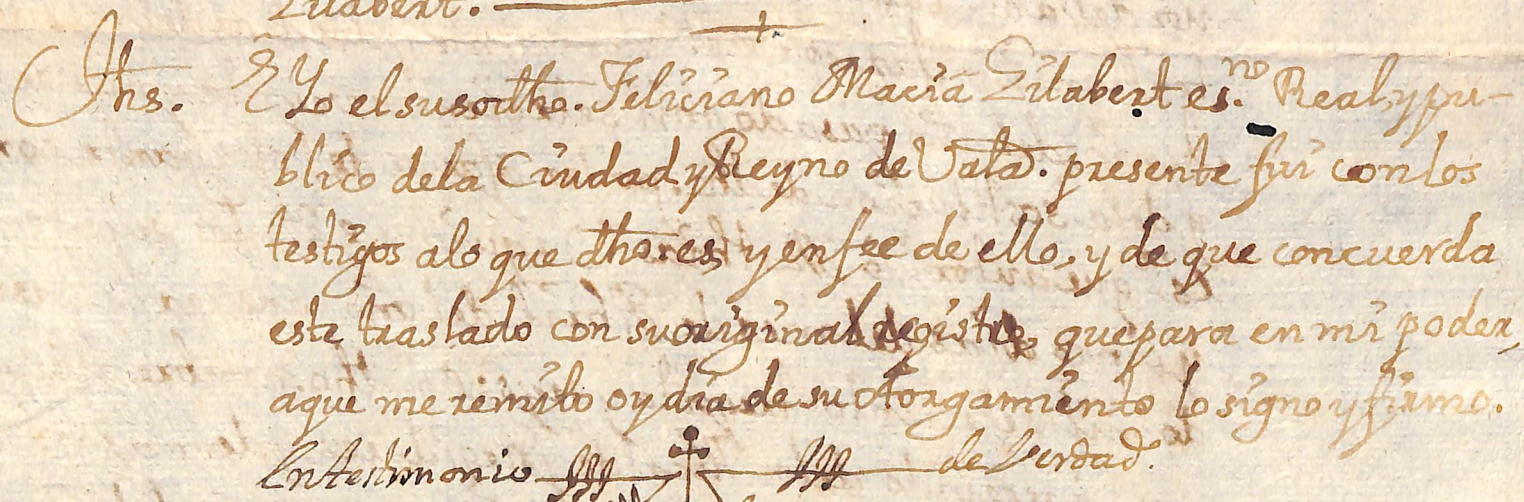 Gilabert.
Jhs. E Yo el susodho. Feliciano Maciá Gilabert es.no Real, y pu-
blico dela Ciudad y Reyno de Vala. presente fui con los
testigos alo que dho es, y enfee de ello, y de que concuerda
este traslado con su original registro, que para en mi poder,
aque me remito oy dia de su otorgamiento lo signo y firmo.
En testimonio de Verdad.